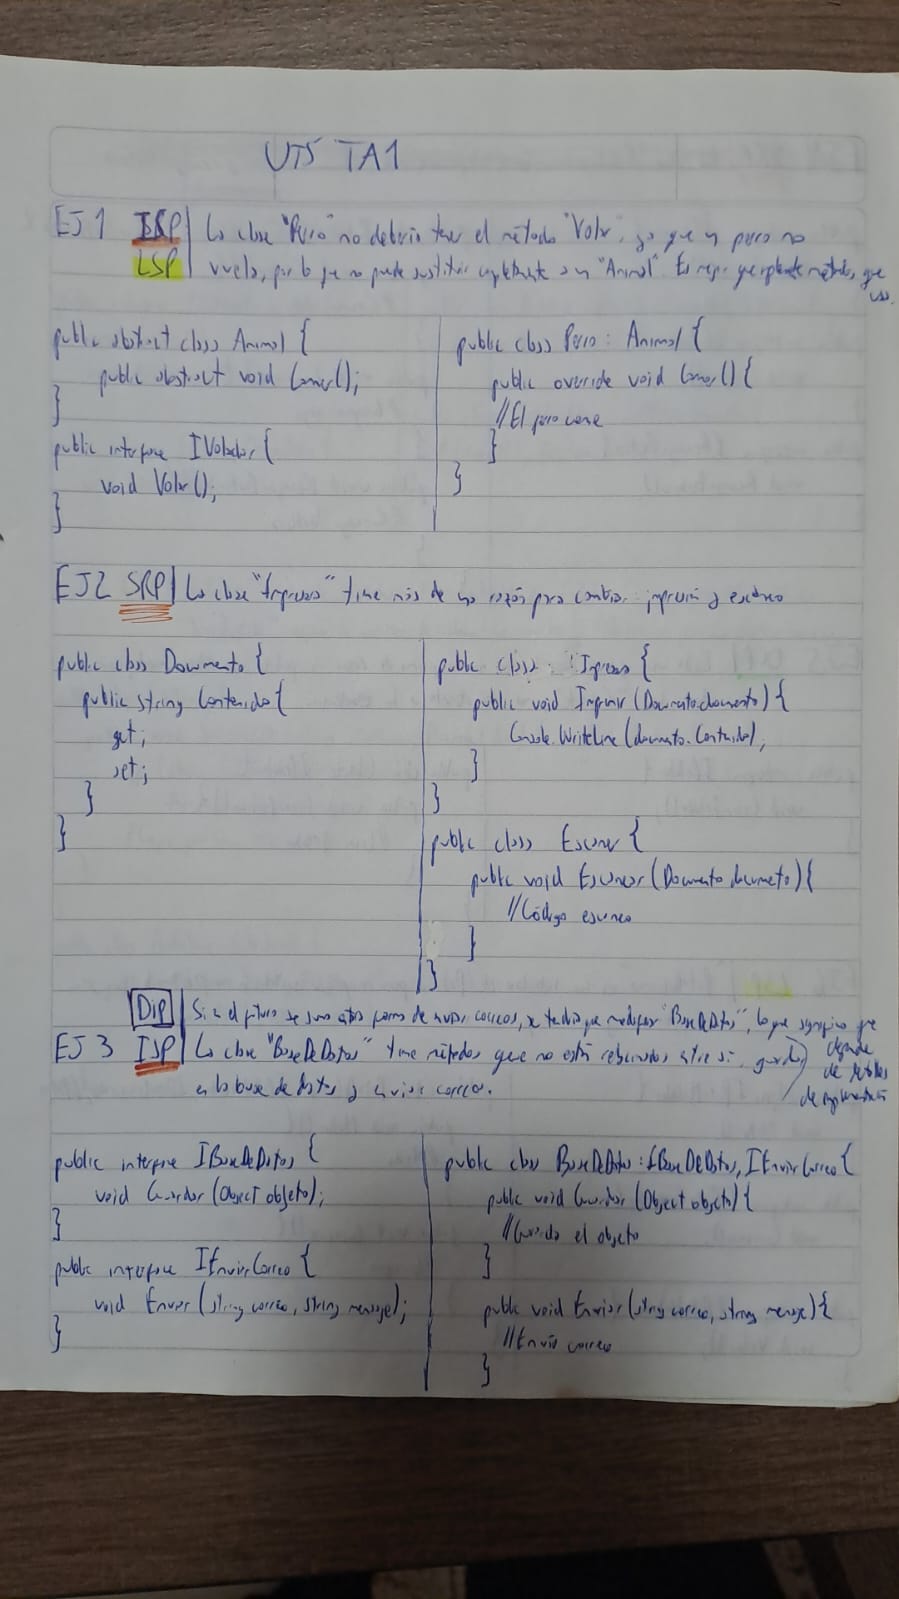 UT5 TA1
EJ1 ISP | La clase "Perro" no debería tener el método "Volar", ya que un perro no
LSP | vuela, por lo que no puede sustituir completamente a un "Animal". Es mejor que implemente métodos que
usa.
public abstract class Animal {
public abstract void Comer();
}
public interface IVolador {
void Volar();
}
public class Perro : Animal {
public override void Comer() {
//El perro come
}
}
EJ2 SRP | La clase "Impresora" tiene más de una razón para cambiar: impresión y escaneo
public class Documento {
public string Contenido {
get;
set;
}
}
public class Impresora {
public void Imprimir (Documento documento) {
Console.WriteLine(documento.Contenido);
}
}
public class Escaner {
public void Escanear (Documento documento) {
//Código escaneo
}
}
DIP | Si en el futuro se suman otras formas de enviar correos, se tendría que modificar "BaseDeDatos", lo que significa que
depende
de detalles
de implementación
EJ 3 ISP | La clase "BaseDeDatos" tiene métodos que no están relacionados entre sí, guardar
en la base de datos y enviar correo.
public interface IBaseDeDatos {
void Guardar (Object objeto);
}
public interface IEnviarCorreo {
void Enviar (string correo, string mensaje);
}
public class BaseDeDatos : IBaseDeDatos, IEnviarCorreo {
public void Guardar (Object objeto) {
//Guarda el objeto
}
public void Enviar (string correo, string mensaje) {
//Envía correo
}